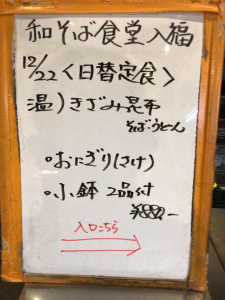 和そば食堂入福
12/22〈日替定食〉
温)きざみ昆布
そば・うどん
◦おにぎり(さけ)
◦小鉢 2品付
入口こちら